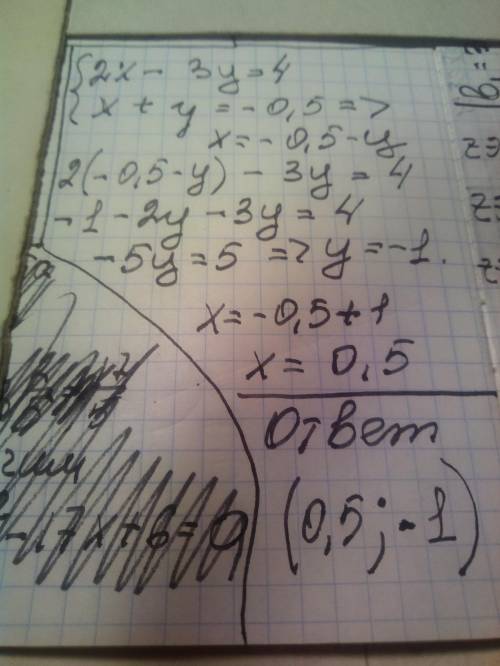 {2x - 3y = 4
{x + y = -0,5 =>
x = -0,5 - y
2(-0,5 - y) - 3y = 4
-1 - 2y - 3y = 4
-5y = 5 => y = -1.
x = -0,5 + 1
x = 0,5
Ответ
(0,5; -1)
- 17x + 6 = 0
|b₁ =
z=
z=
z=